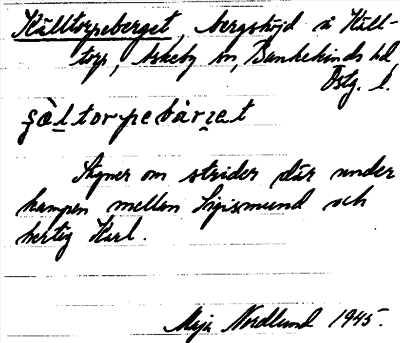 Källtorpeberget, bergshöjd å Käll-
torp, Askeby sn, Bankekinds hd,
Östg. l.
s̨àl̲torpebàrʒ̨et
Sägner om strider där under
kampen mellan Sigismund och
hertig Karl.
Maja Nordlund 1945.